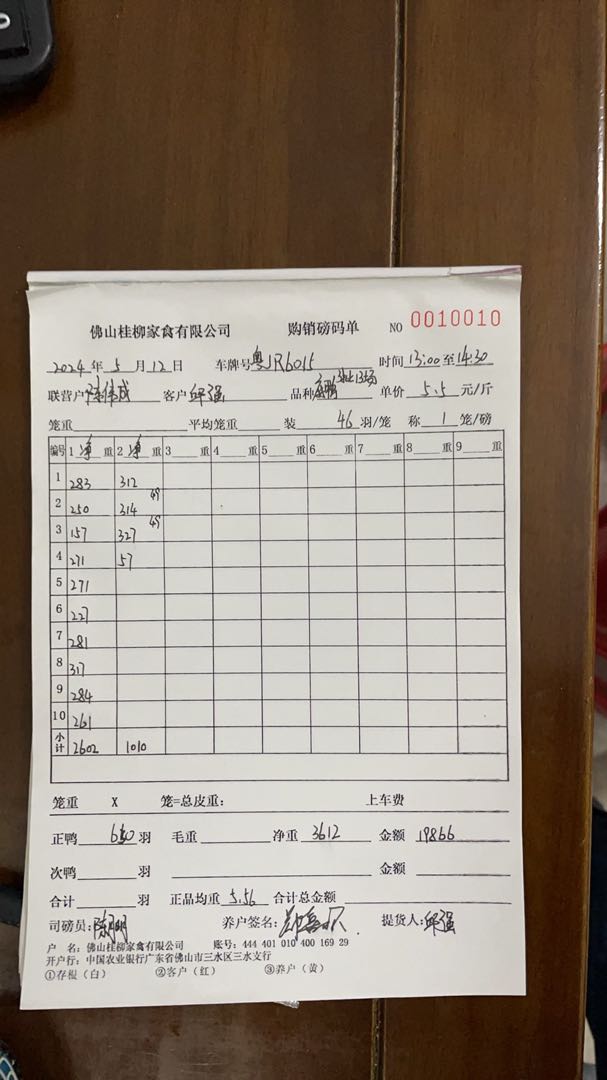 佛山桂柳家禽有限公司 购销磅码单 NO 0010010
2024年 5 月 12 日 车牌号 粤JR6015 时间 13:00 至 14:30
联营户 伟成 客户 邱强 品种 单价 5.5 元/斤
笼重 平均笼重 装 46 羽/笼 称 1 笼/磅
编号 1 净 重 2 净 重 3 重 4 重 5 重 6 重 7 重 8 重 9 重
1 283 312
2 250 314 49
3 157 327 49
4 271 57
5 271
6 227
7 281
8 317
9 284
10 261
小计 2602 1010
笼重 X 笼=总皮重: 上车费
正鸭 羽 毛重 净重 3612 金额 19866
次鸭 羽 金额
合计 羽 正品均重 5.56 合计总金额
司磅员: 养户签名: 提货人: 邱强
户 名: 佛山桂柳家禽有限公司 账号: 444 401 010 400 169 29
开户行: 中国农业银行广东省佛山市三水区三水支行
①存根(白) ②客户(红) ③养户(黄)